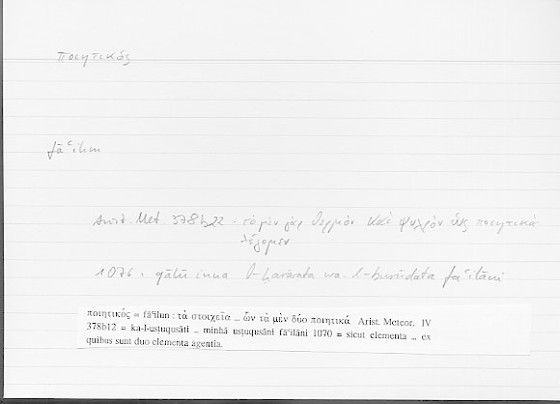 ποιητικός
fāʿilun
Arist. Met. 378b22 · τὸ μὲν γὰρ θερμὸν καὶ ψυχρὸν ὡς ποιητικὰ
λέγομεν
1076 · qālū inna l-ḥarārata wa-l-burūdata fāʿilāni
ποιητικός = fāʿilun : τὰ στοιχεῖα ... ὧν τὰ μὲν δύο ποιητικά Arist. Meteor. IV
378b12 = ka-l-usṭuqusāti ... minhā usṭuqusāni fāʿilāni 1070 = sicut elementa ... ex
quibus sunt duo elementa agentia.